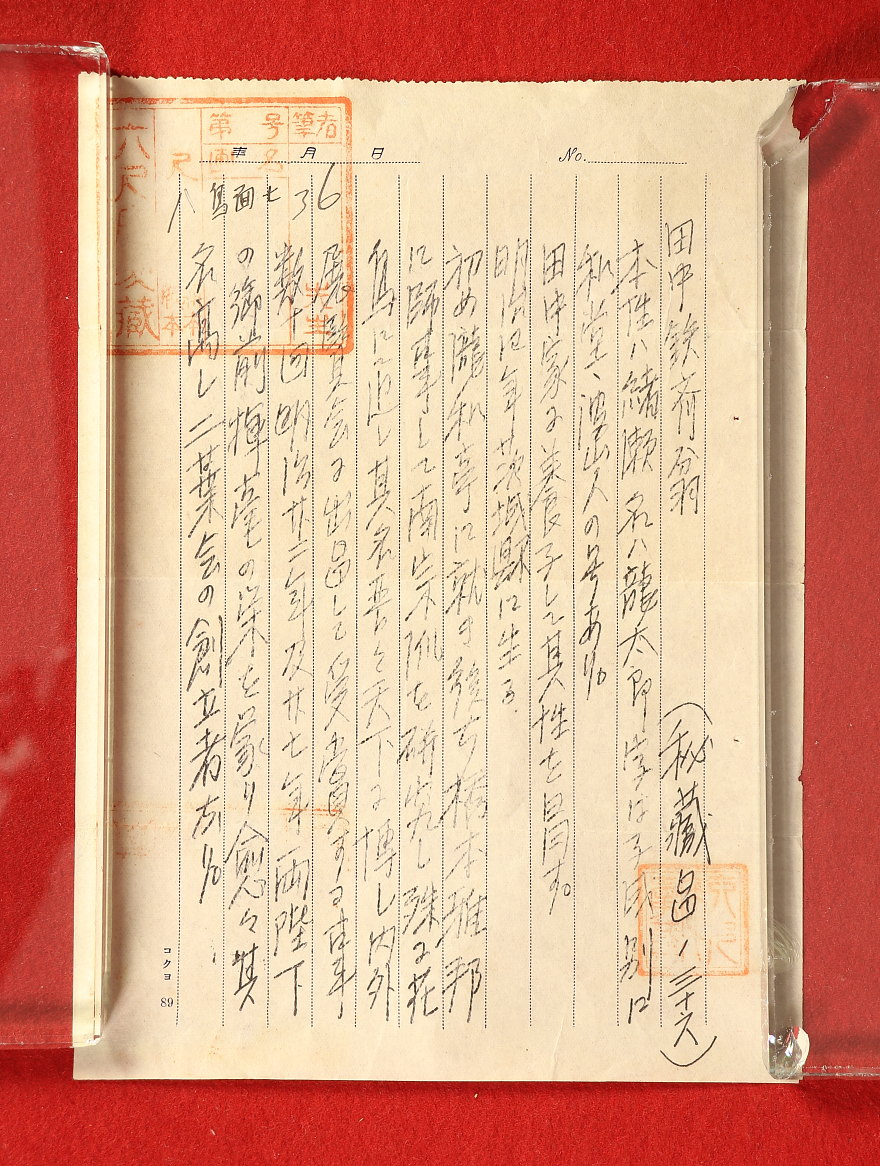 No.
年 月 日
田中鉄斎翁
(秘蔵品ノ三十六)
本性ハ緒瀬名ハ龍太郎字は子成別に
和堂、 山人の号あり。
田中家の養子して其性を冒す。
明治 年茨城県に生る.
初め瀧和亭に就き後ち橋本雅邦
に師事して南宗 を研究し殊に花
鳥に適し其名誉を天下に博し内外
展覧会に出品して受賞する事
数十回明治廿二年及廿七年両陛下
の御前揮毫の栄を蒙り愈々其
名高し二葉会の創立者なり。
36
鳥画七
八
第 号
筆者
蔵
コクヨ 89